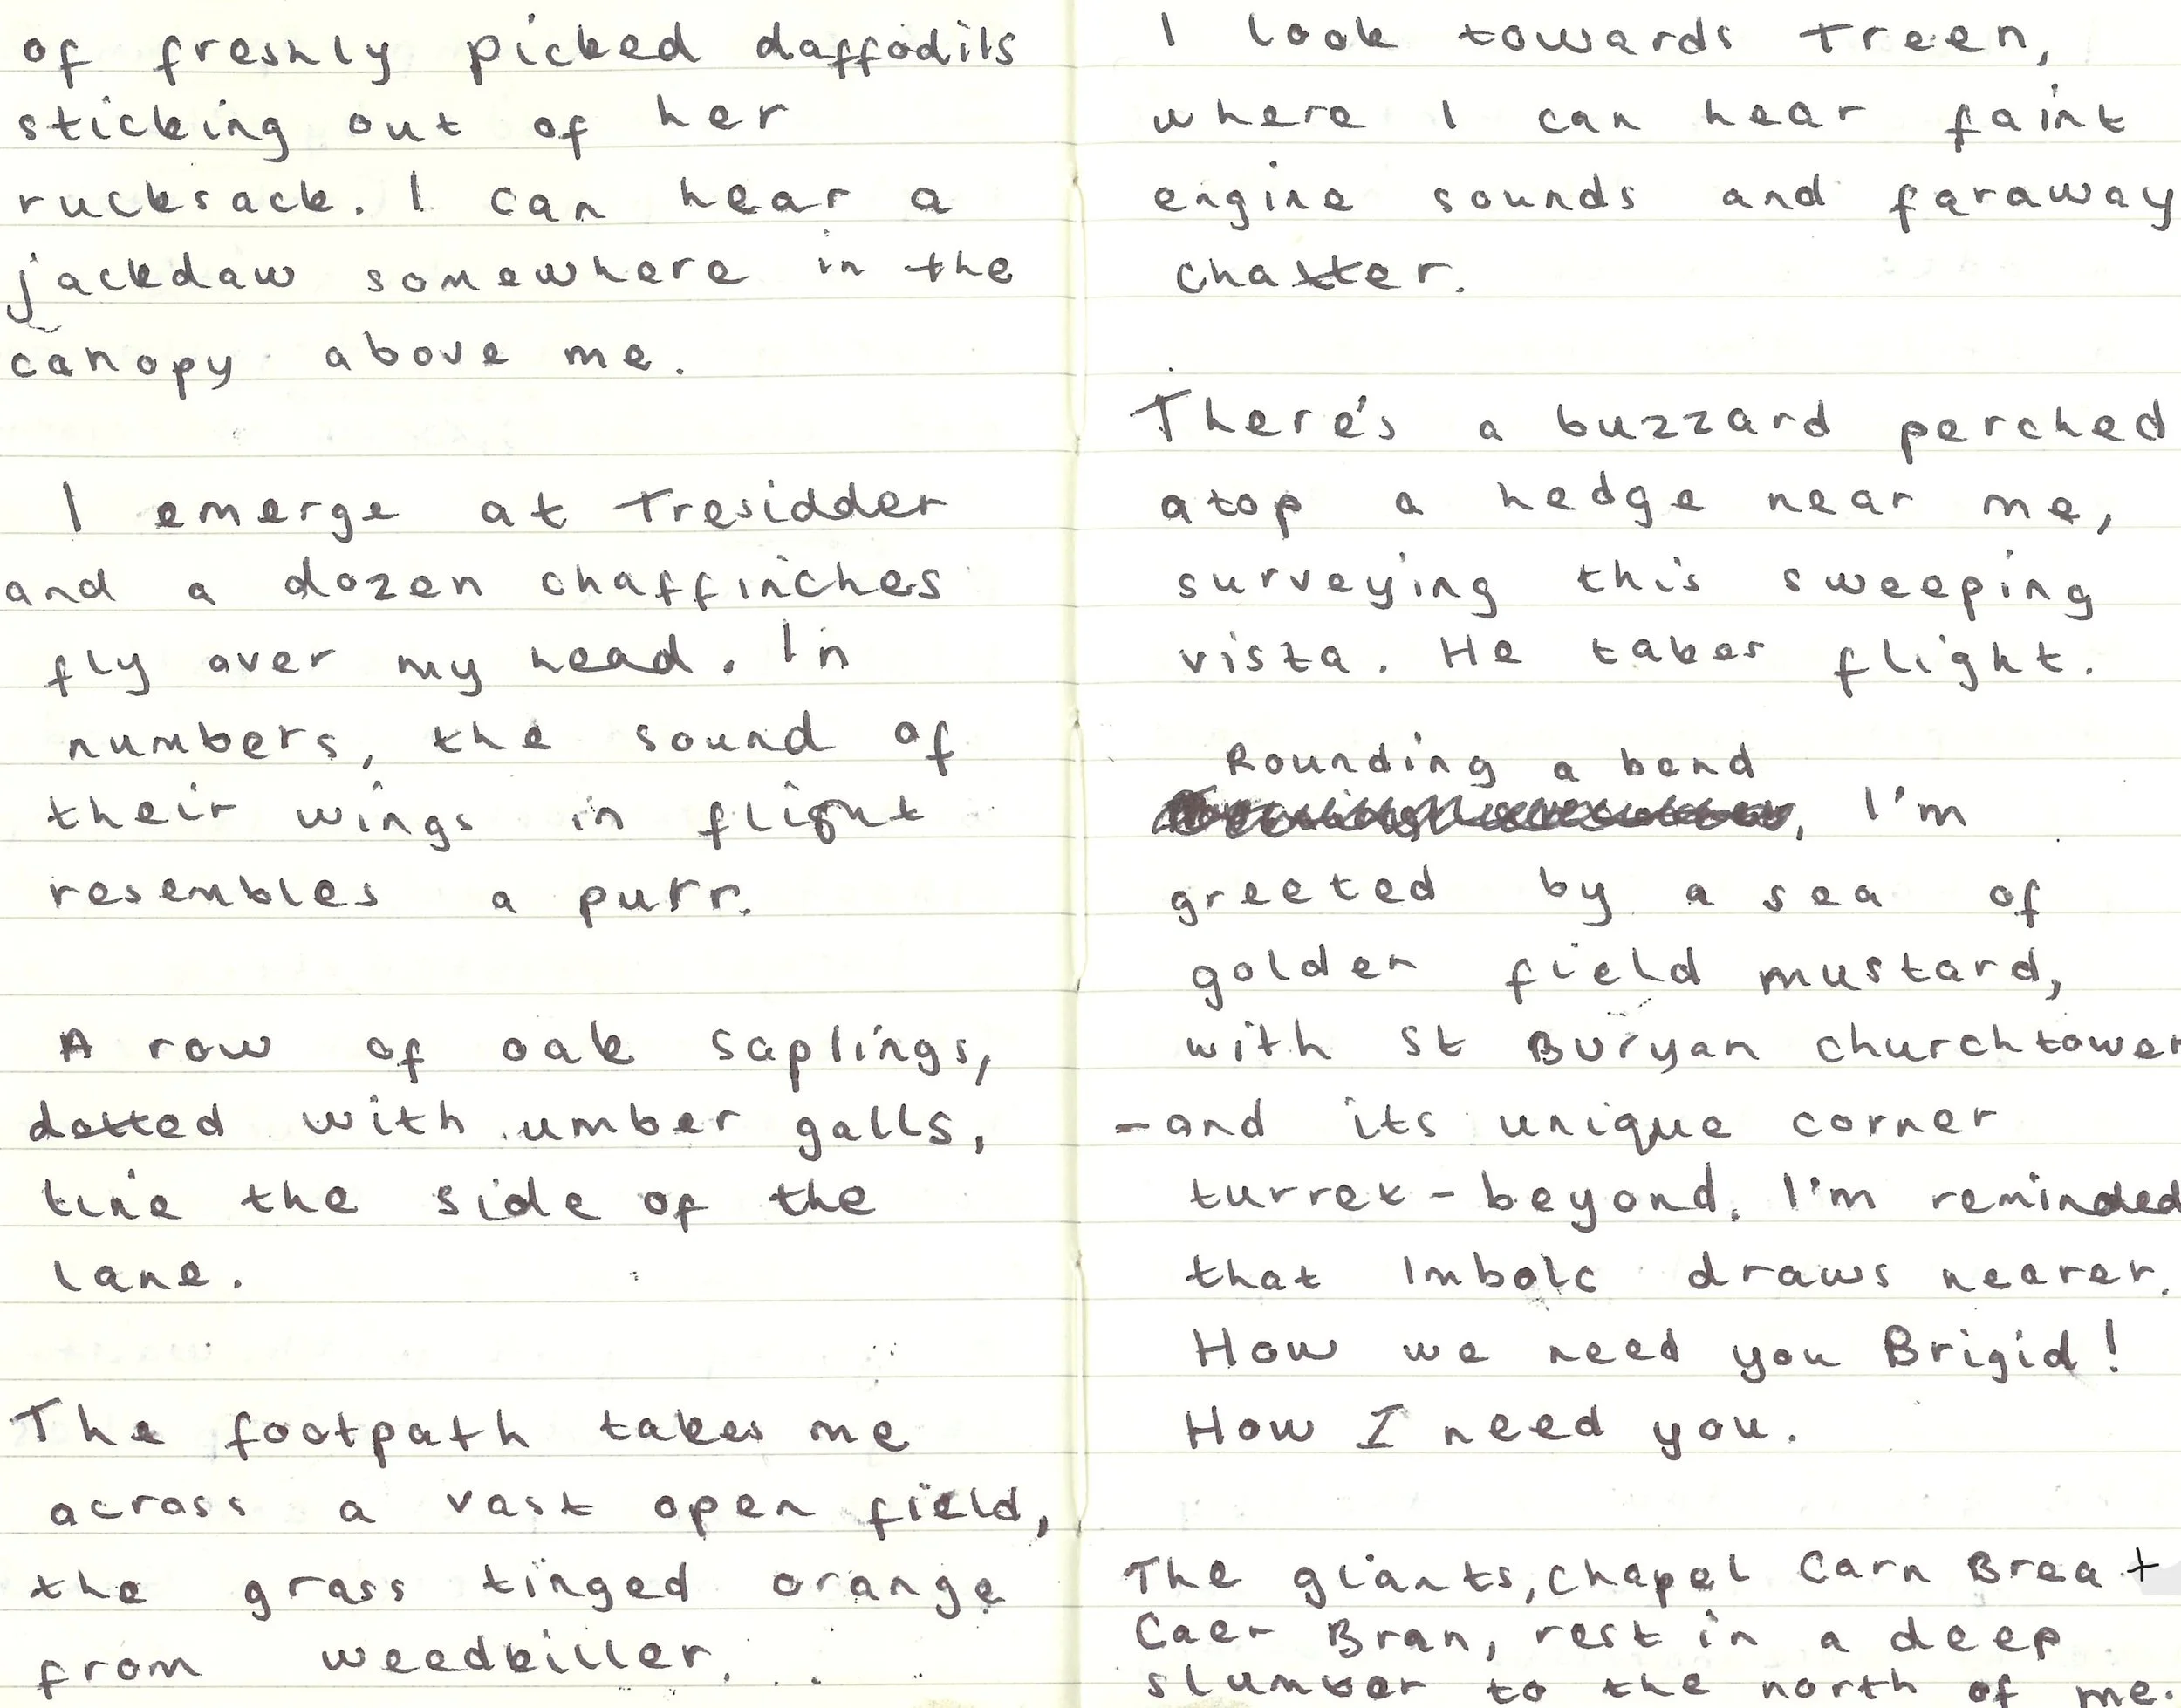 of freshly picked daffodils
sticking out of her
rucksack. I can hear a
jackdaw somewhere in the
canopy above me.
I emerge at Tresidder
and a dozen chaffinches
fly over my head. In
numbers, the sound of
their wings in flight
resembles a purr.
A row of oak saplings,
dotted with umber galls,
line the side of the
lane.
The footpath takes me
across a vast open field,
the grass tinged orange
from weedkiller...
I look towards Treen,
where I can hear faint
engine sounds and faraway
chatter.
There's a buzzard perched
atop a hedge near me,
surveying this sweeping
vista. He takes flight.
Rounding a bend
, I'm
greeted by a sea of
golden field mustard,
with St Buryan churchtower
- and its unique corner
turret - beyond. I'm reminded
that Imbolc draws nearer.
How we need you Brigid!
How I need you.
The giants, Chapel Carn Brea +
Caer Bran, rest in a deep
slumber to the north of me.